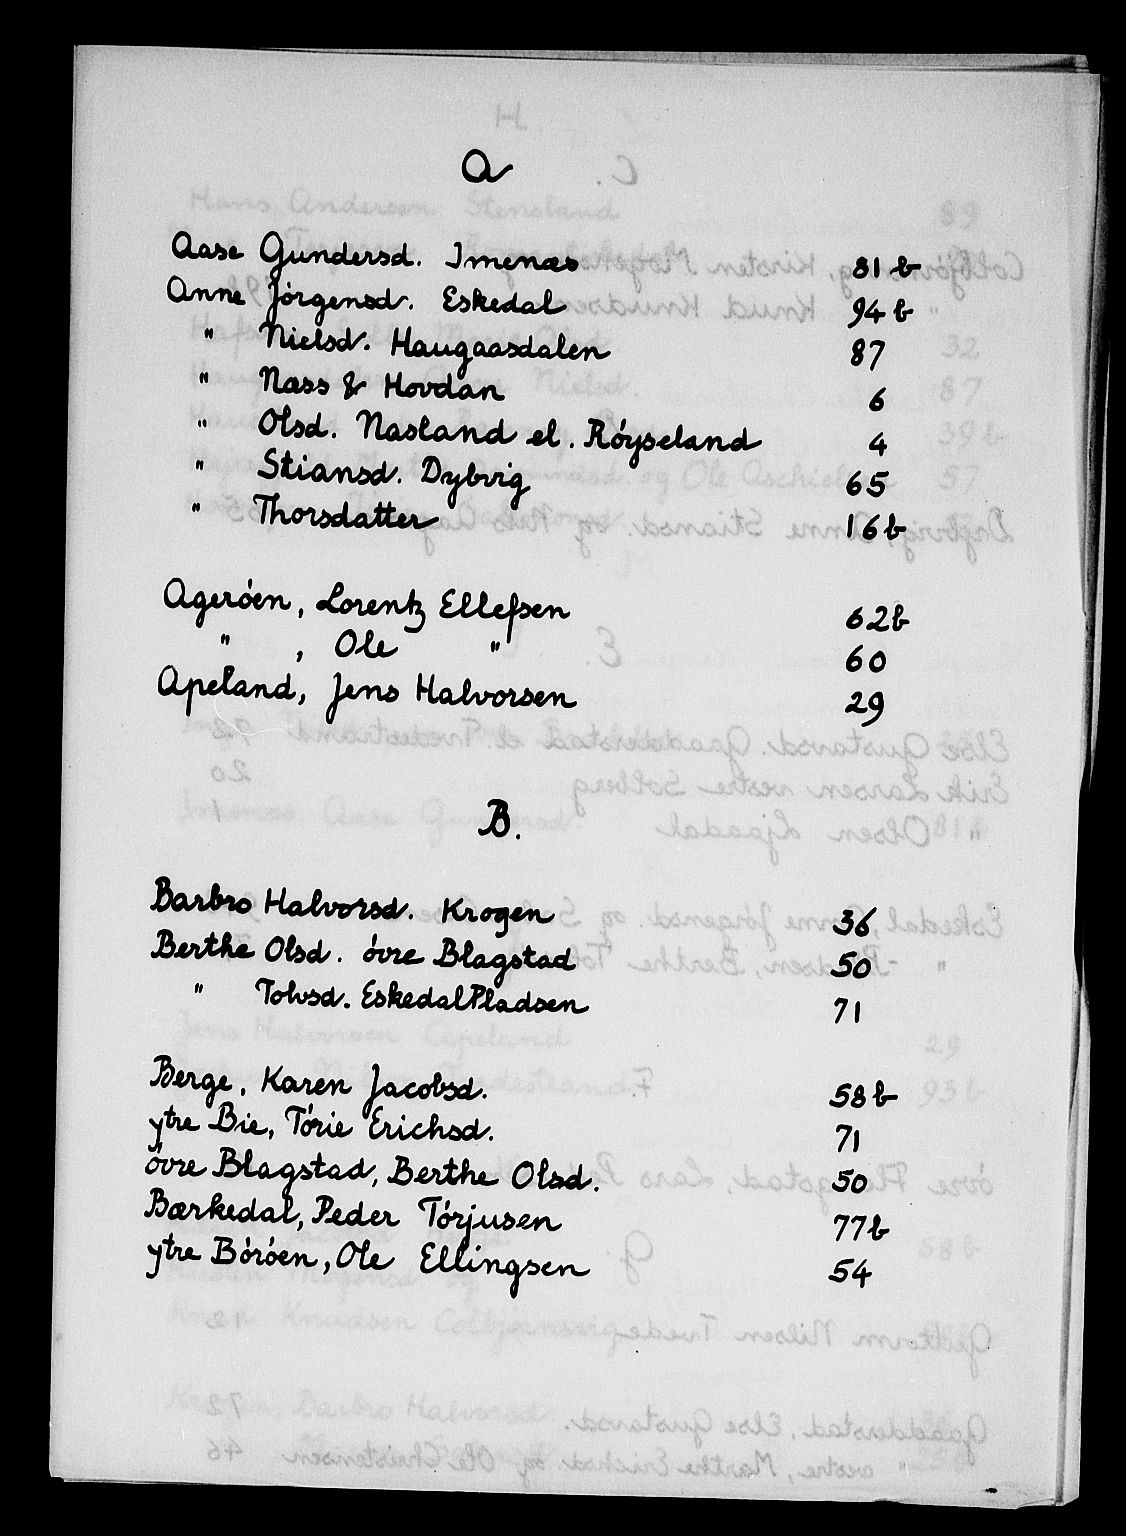 A
Aase Gundersd. Imenæs 81 b
Anne Jórgensd. Eskedal 94 b
" Nielsd. Haugaasdalen 87
" Næss & Hovdan 6
" Olsd. Nasland el. Róyseland 4
" Stiansd. Dybvig 65
" Thorsdatter 16 b
Ageróen, Lorentz Ellefsen 62 b
" , Ole " 60
Apeland, Jens Halvorsen 29
B.
Barbro Halvorsd. Krogen 36
Berthe Olsd. óvre Blagstad 50
" Tolvsd. Eskedal Pladsen 71
Berge, Karen Jacobsd. 58 b
ytre Bie, Tórie Erichsd. 71
óvre Blagstad, Berthe Olsd. 50
Bærkedal, Peder Tórjusen 77 b
ytre Bóróen, Ole Ellingsen 54